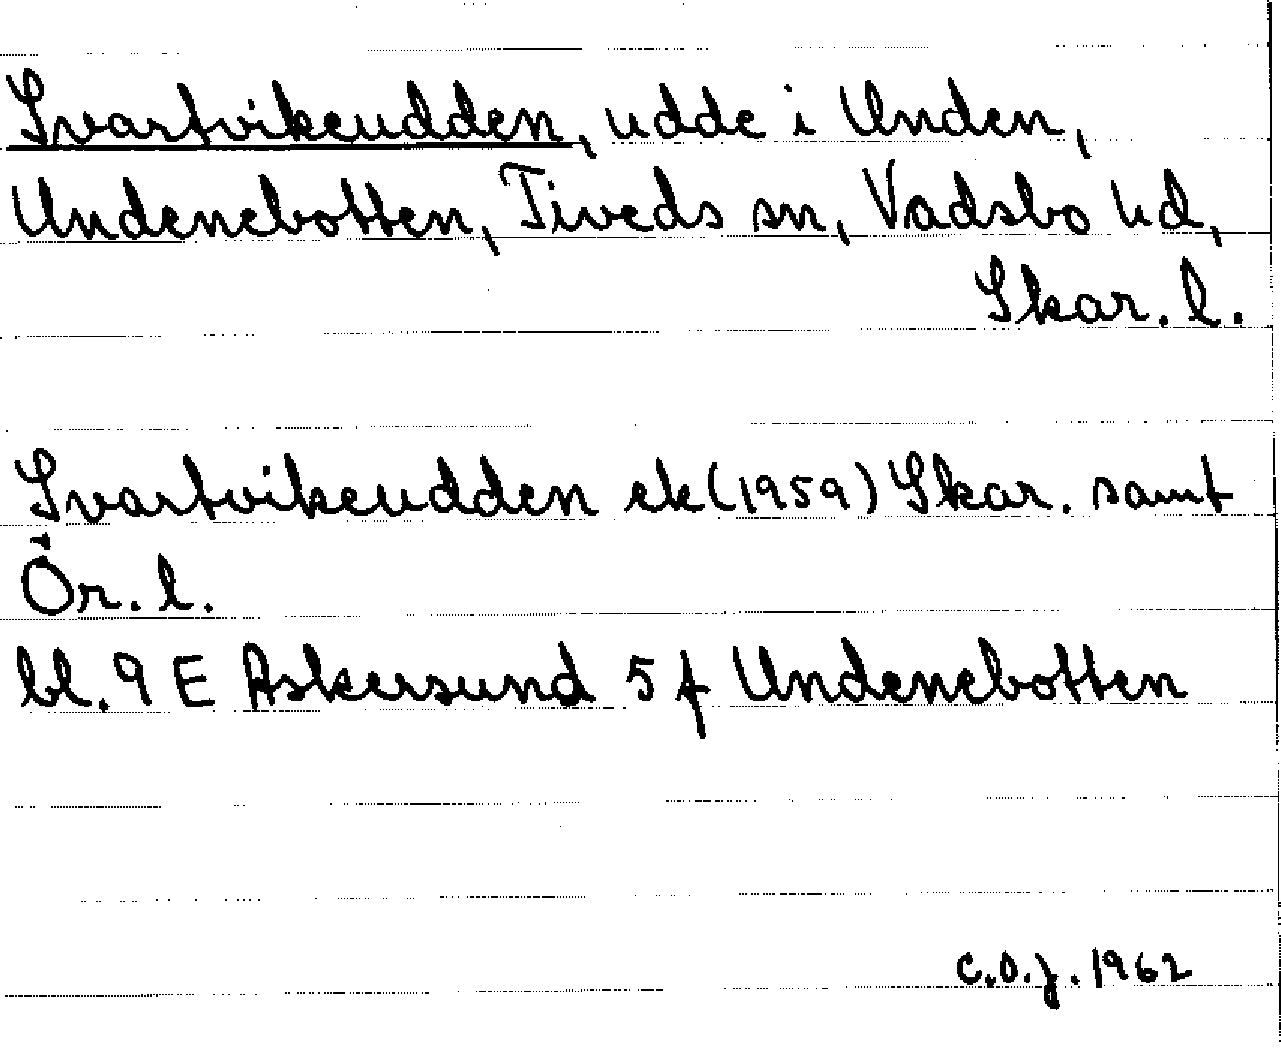 Svartvikeudden, udde i Unden,
Undenebotten, Tiveds sn, Vadsbo hd,
Skar. l.
Svartvikeudden ek (1959) Skar. samt
Ör. l.
bl. 9 E Askersund 5 f Undenebotten
C.O.J. 1962